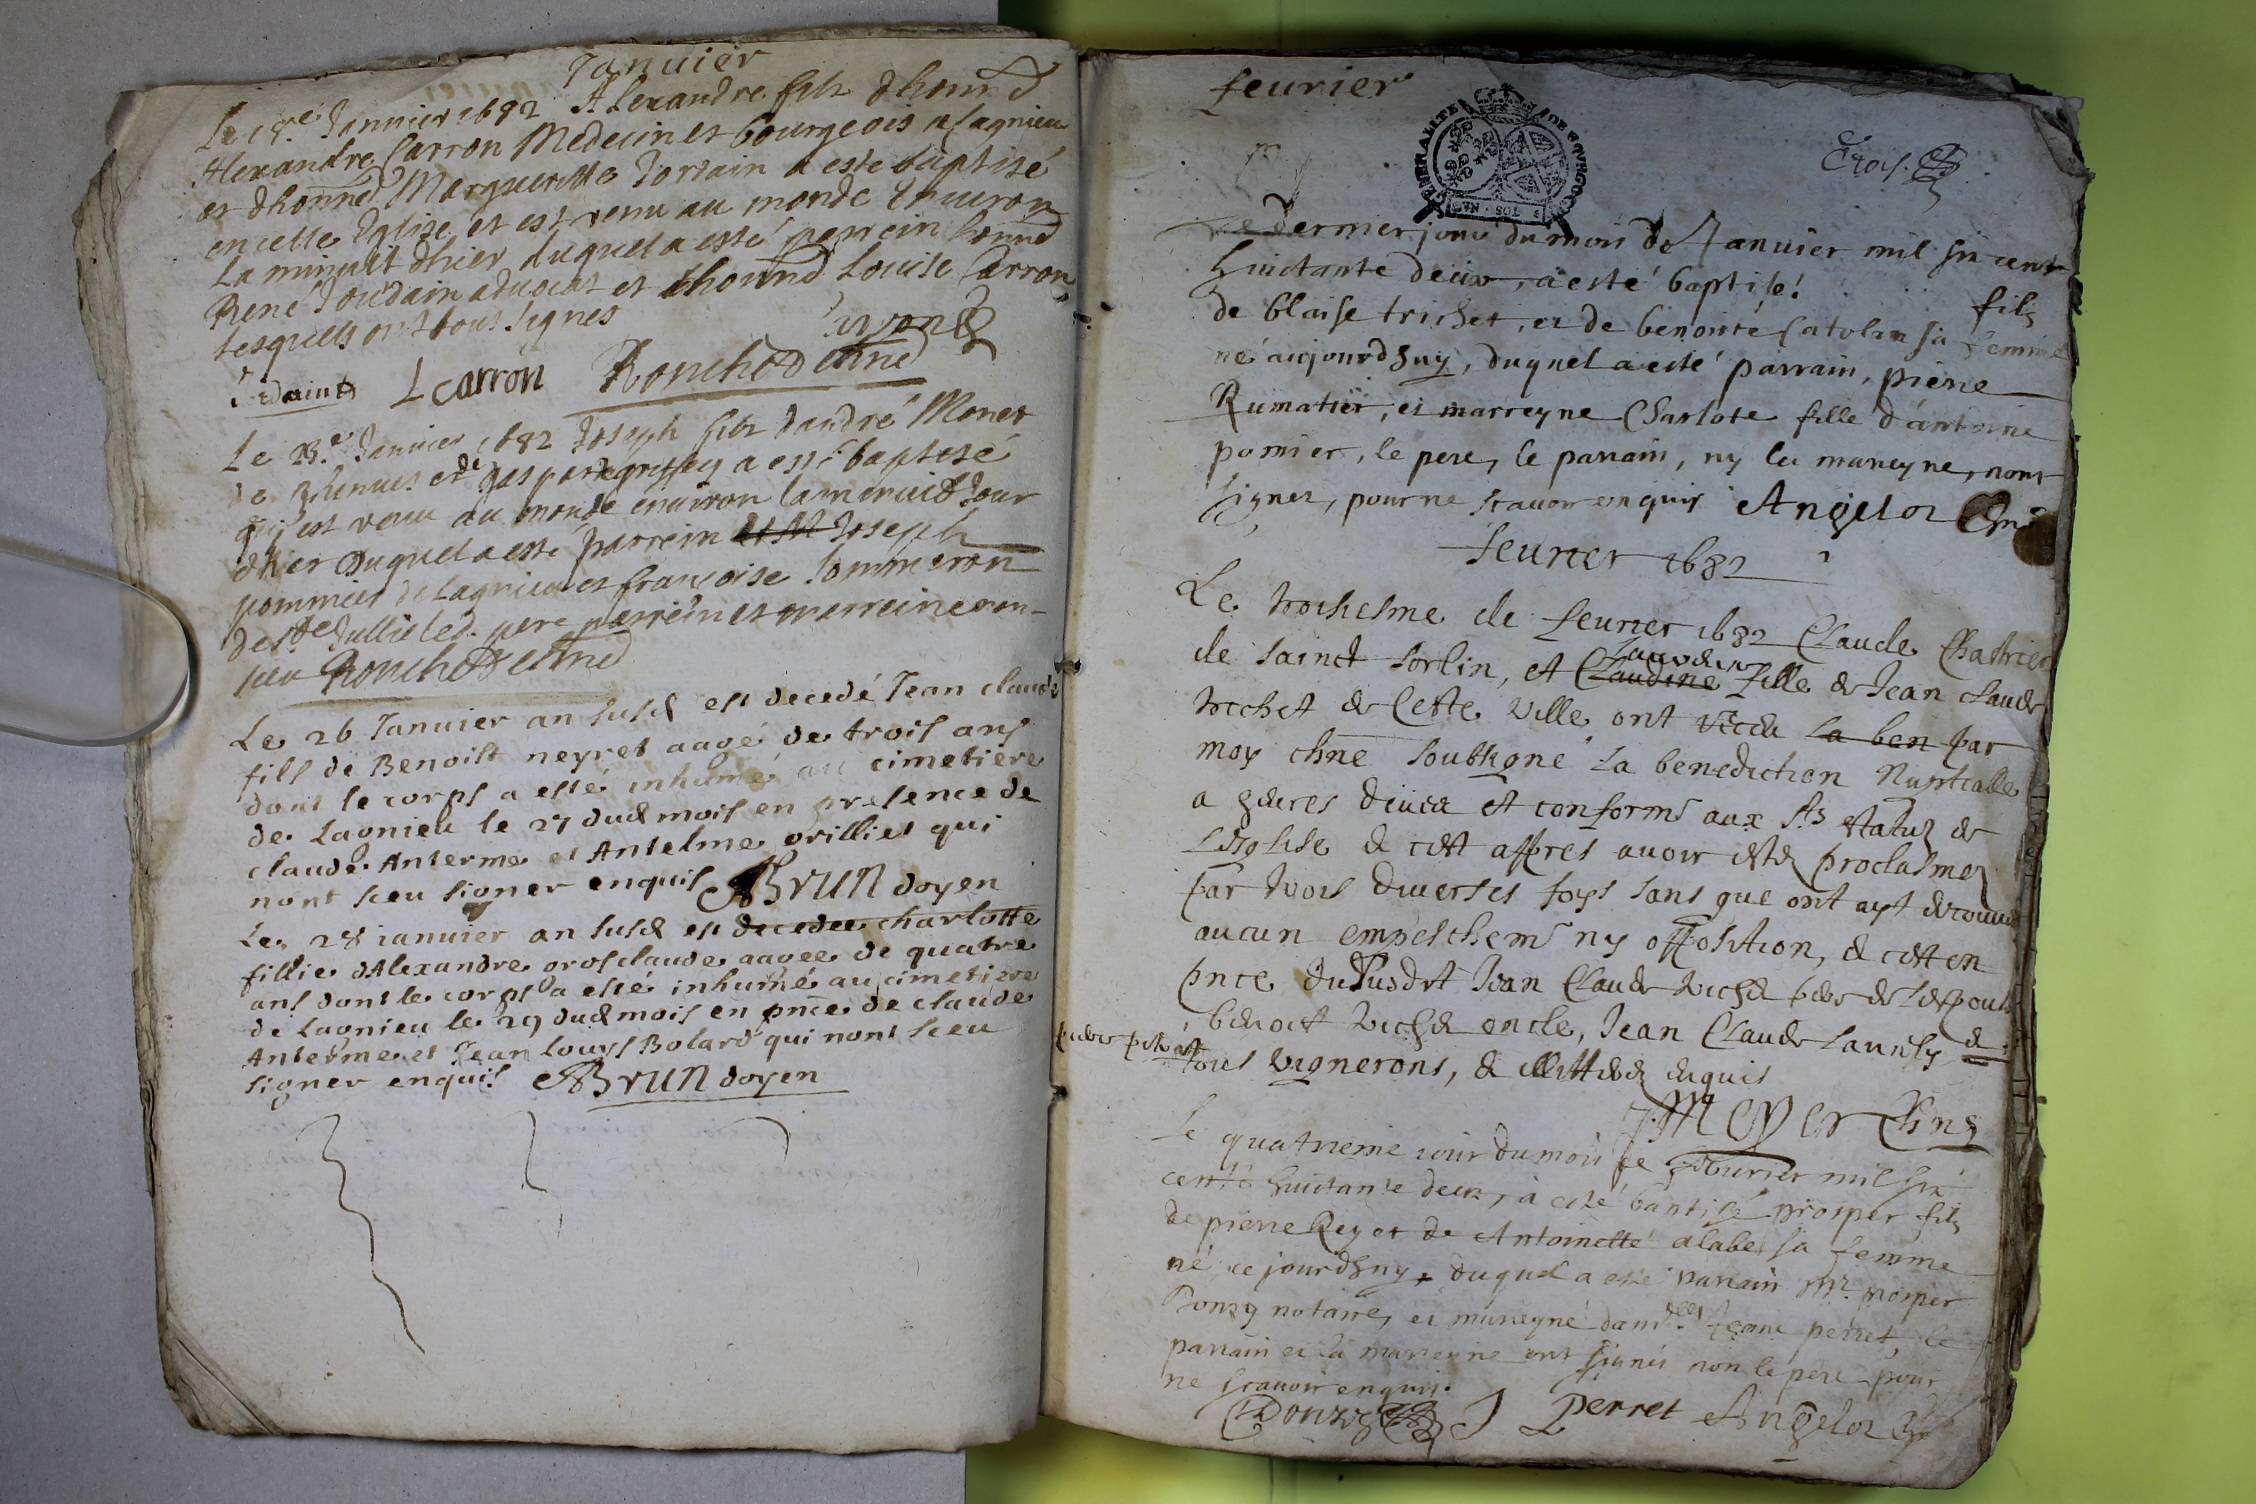 Januier
Le 18.e Januier 1682 Alexandre filz dhonnd
Alexandre Carron Medecin et bourgeois a lagnieu
et dhonned Margueritte Jordain a este baptisé
en cette Eglise et est venu au monde enuiron
La minuit dhier duquel a esté perrein honnd
René Jourdain aduocat et dhonnd Louise Carron
lesquels ont tous signes
L carron Ronchod chne
Le 23.e Januier 1682 Joseph filz dandré Monet
de et de a esté baptisé
qui est venu au monde enuiron la minuit jour
dhier duquel a esté parrein et M Joseph
pommier de Lagnieu et francoise Sommeron
pere parrein et marreine non
sceu Ronchod chne
Le 26 Januier an susd est decedé Jean claude
fils de Benoist neyret aagé de trois ans
dont le corps a esté inhumé au cimetiere
de Lagnieu le 27 dud mois en presence de
claude Anterme et Antelme orilliet qui
nont sceu signer enquis ABrun doyen
Le 28 ianuier an susd est decedee charlotte
fillie dAlexandre grosclaude aagee de quatre
ans dont le corps a esté inhumé au cimetiere
de Lagnieu le 29 dud mois en pnce de claude
Anterme et Jean Louys Bolard qui nont sceu
signer enquis ABrun doyen
feurier
GENERALITE DE BOURGOG
VN SOL
Trois
Le dernier jour du mois de Januier mil six cent
huictante deux, a esté baptisé! fils
de blaise trichet, et de benoite Catolin sa femme
né aujourdhuy, duquel a esté parrain, pierre
Rumatier, et marreyne Charlote fille d'antoine
pomier, le pere, le parrain, ny la marreyne, nont
signer, pour ne scauoir enquis Angelot chne
feurier 1682
Le troisiesme de feurier 1682 Claude Chastrier
de sainct sorlin, et Claudine fille de Jean claude
trichet de Cette ville ont la ben par
moy chne soubsigné la benediction Nuptialle
a heures et conforme aux sts statuz de
Leglise & cest apres auoir esté proclasmez
par trois diuerses foys sans que ont ayt decouuert
aucun empeschemt ny opposition, & cest en
pnce dususdit Jean Claude trichet pere de lespouse
benoit trichet oncle, Jean Claude &
tous vignerons, & enquis
J. Meyer chne
Le quatrieme iour du mois de feburier mil six
cents huictante deux, a esté baptisé prosper fils
de pierre Rey et de Antoinette alabe sa femme
né ce jourdhuy, duquel a esté parrain Mr. prosper
Donzy notaire, et marreyne damlle. Jeane perret, le
parrain et la marreyne ont signés non le pere pour
ne scauoir enquis.
Donzy J Perret Angelot